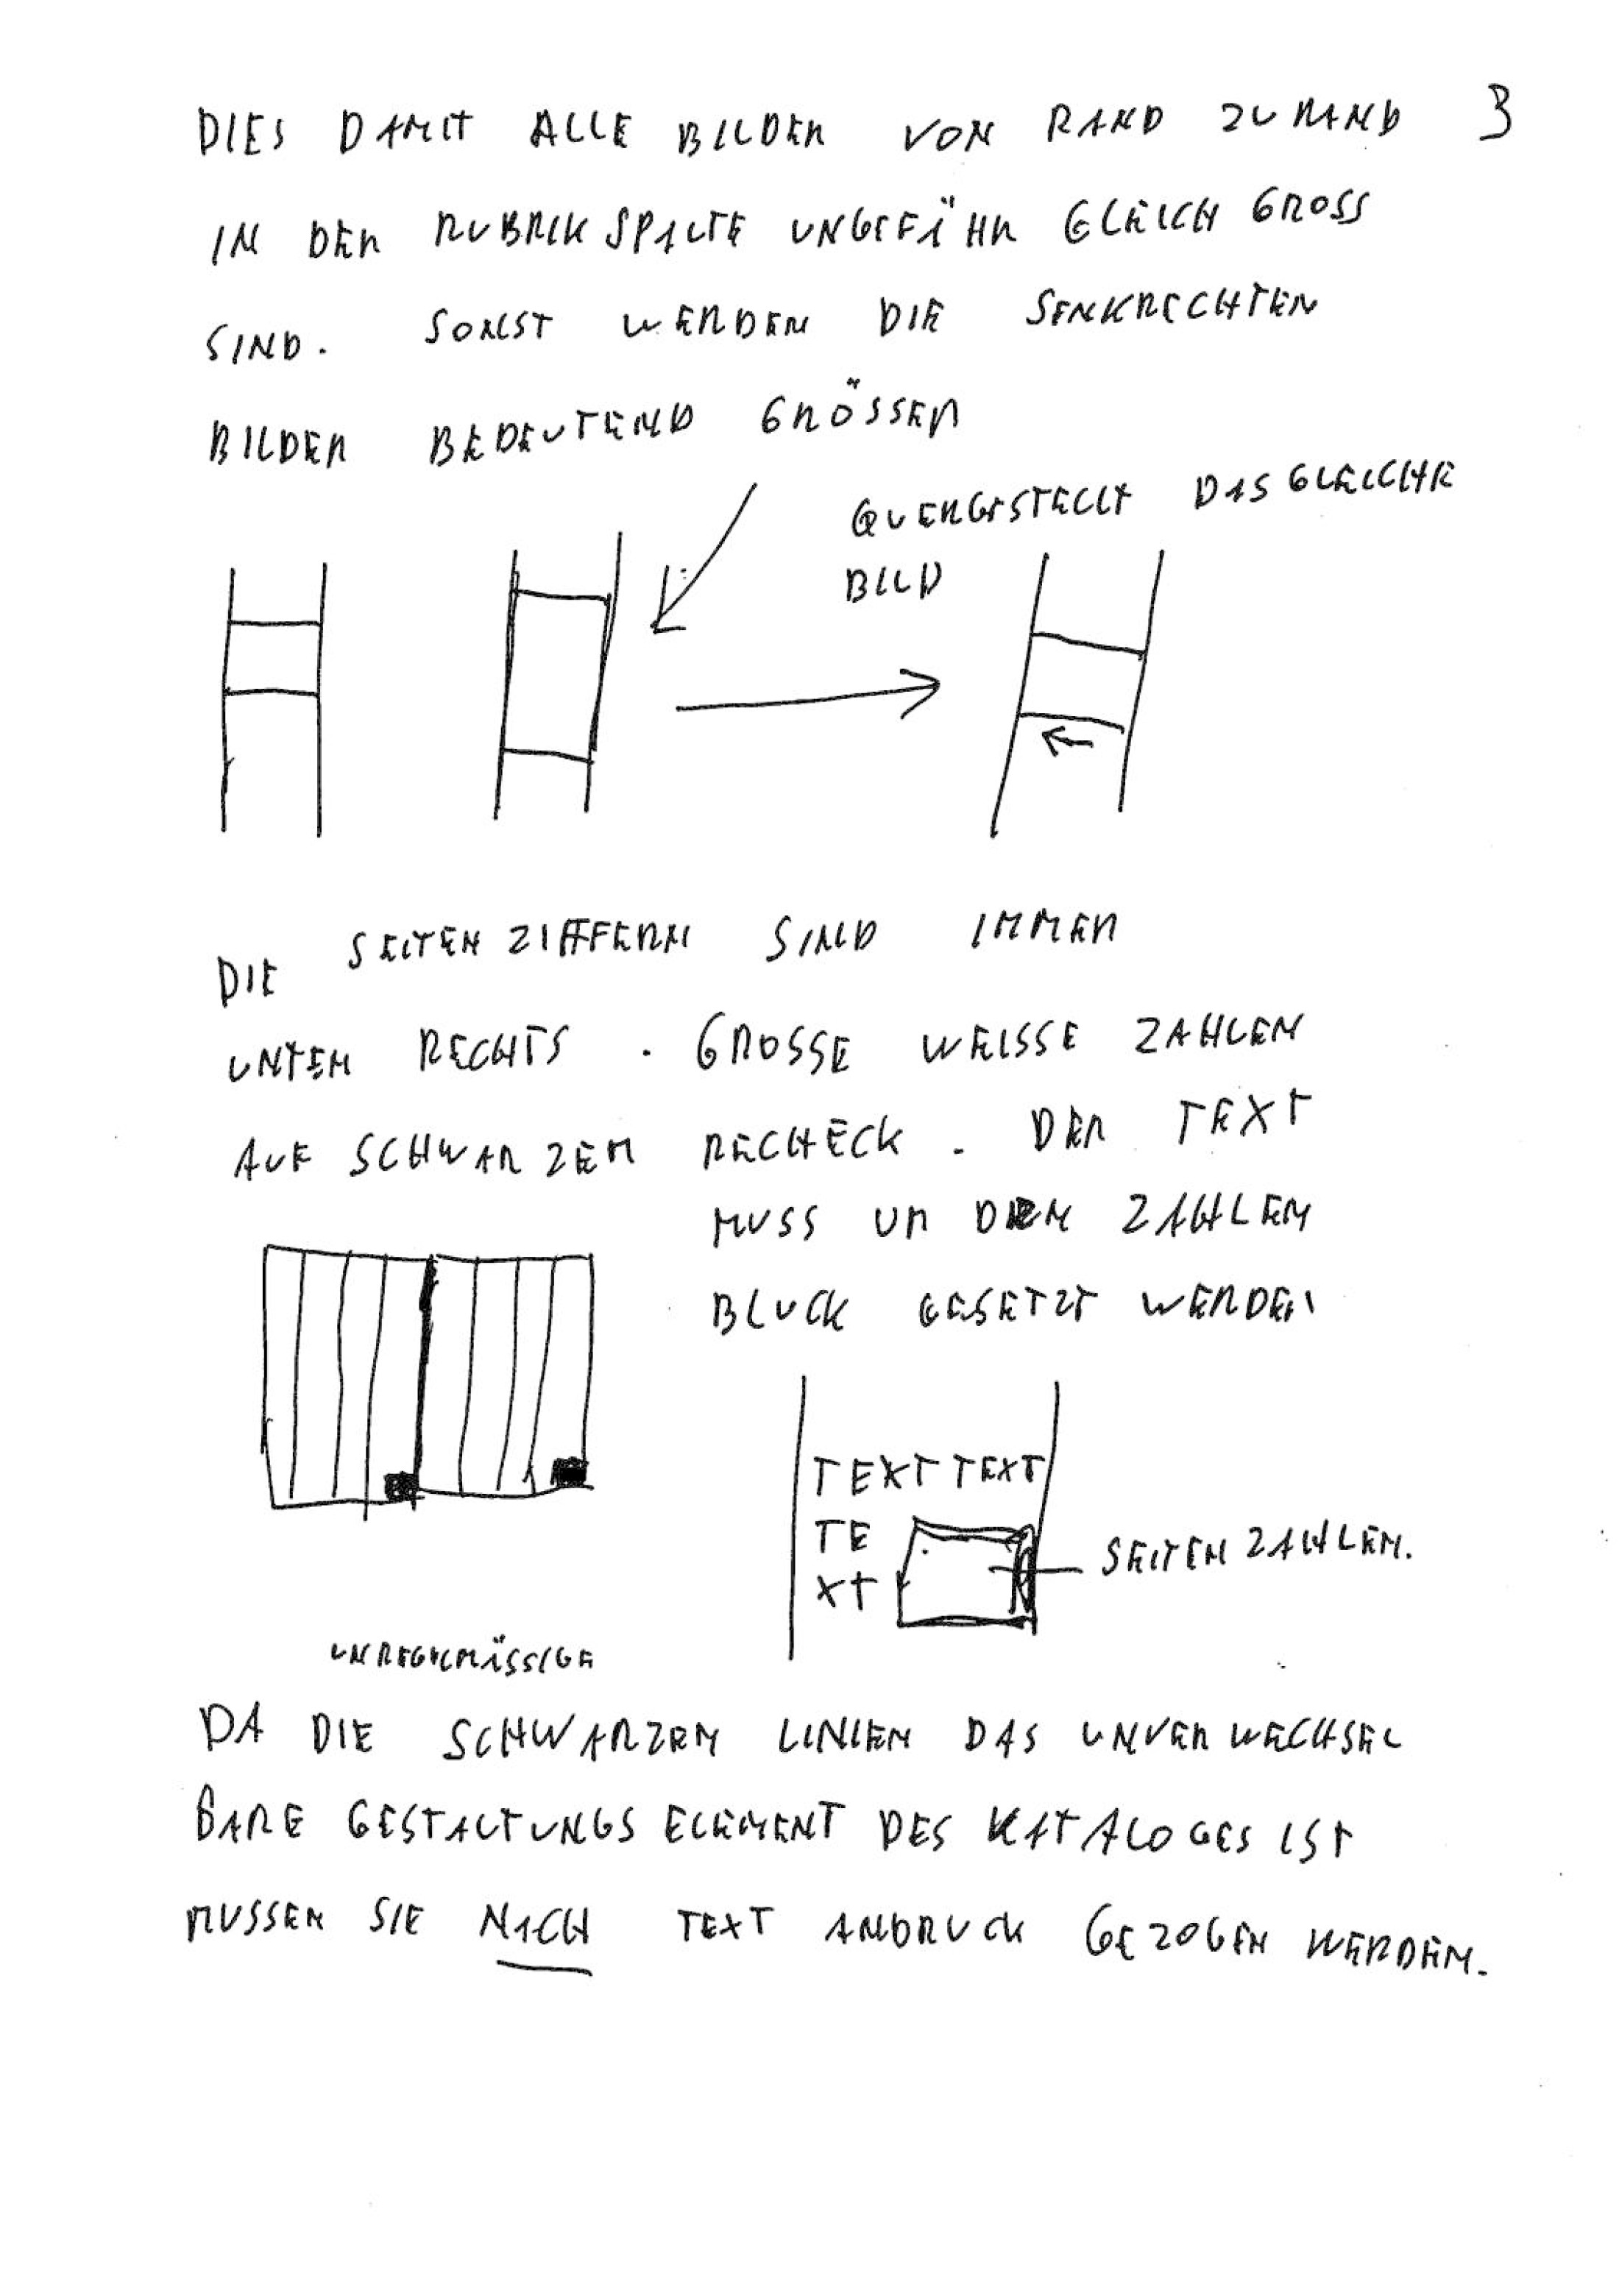 DIES DAMIT ALLE BILDER VON RAND ZU RAND 3
IN DER RUBRIKSPALTE UNGEFÄHR GLEICH GROSS
SIND. SONST WERDEN DIE SENKRECHTEN
BILDER BEDEUTEND GRÖSSER
QUERGESTELLT DAS GLEICHE
BILD
DIE SEITENZIFFERN SIND IMMER
UNTEN RECHTS. GROSSE WEISSE ZAHLEN
AUF SCHWARZEM RECHECK. DER TEXT
MUSS UM DEN ZAHLEN
BLOCK GESETZT WERDEN
TEXT TEXT
TE
XT
SEITEN ZAHLEN.
UNREGELMÄSSIGE
DA DIE SCHWARZEN LINIEN DAS UNVERWECHSEL
BARE GESTALTUNGSELEMENT DES KATALOGES IST
MUSSEN SIE NACH TEXT ANDRUCK GEZOGEN WERDEN.